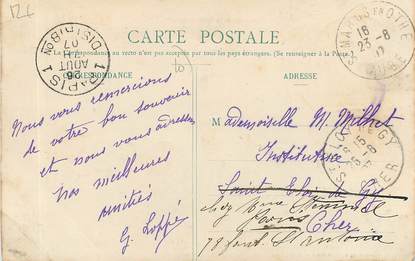 CARTE POSTALE
La correspondance au recto n'est pas acceptée par tous les pays étrangers. (Se renseigner à la Poste.)
CORRESPONDANCE
ADRESSE
PARIS 1
DISTRIBON
AOUT
07
18
23 -8
Nous vous remercions
de votre bon souvenir
et nous vous adressons
nos meilleures
amitiés
G. Loppé
Mademoiselle M. Milhet
Institutrice
Saint Eloi de Gy
chez
Paris Cher
78 faub. St Antoine